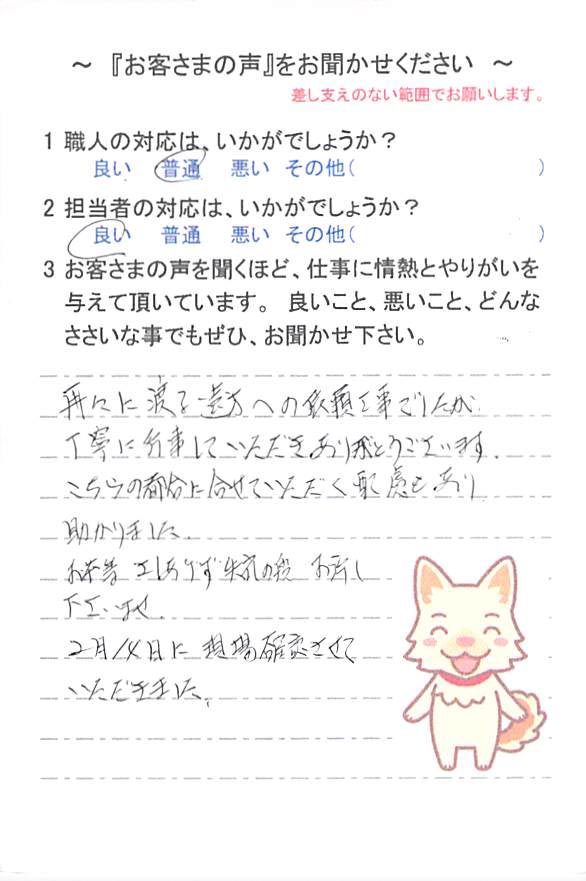 ～ 『お客さまの声』をお聞かせください ～
差し支えのない範囲でお願いします。
1 職人の対応は、いかがでしょうか？
良い 普通 悪い その他( )
2 担当者の対応は、いかがでしょうか？
良い 普通 悪い その他( )
3 お客さまの声を聞くほど、仕事に情熱とやりがいを
与えて頂いています。 良いこと、悪いこと、どんな
ささいな事でもぜひ、お聞かせ下さい。
再々に渡る遠方への依頼工事でしたが、
丁寧に行事していただきありがとうございます。
こちらの都合に合せていただく配慮もあり
助かりました。
お茶等 出しありず失礼の段 お許し
下さいませ。
2月14日に現場確認させて
いただきました。